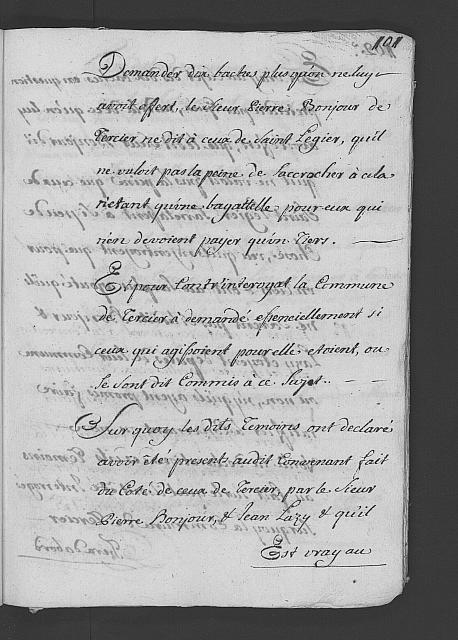 101
Demander dix baches plus qu'on ne luy
avoit offert, le Sieur Pierre Bonjour de
Tercier ne dit à ceux de Saint Legier, qu'il
ne valoit pas la peine de s'accracher à cela
n'etant qu'une bagattelle pour eux qui
n'en devoient payer qu'un Tiers.
Et pour Contr'interogat la Commune
de Tercier à demandé essenciellement si
ceux qui agissoient pour elle etoient, ou
se sont dit Commis à ce Sujet.
Sur quoy les dits Temoins ont declaré
avoir été presents audit Convenant fait
du Coté de ceux de Tercier, par le Sieur
Pierre Bonjour, & Jean Lazy & qu'il
Est vray au